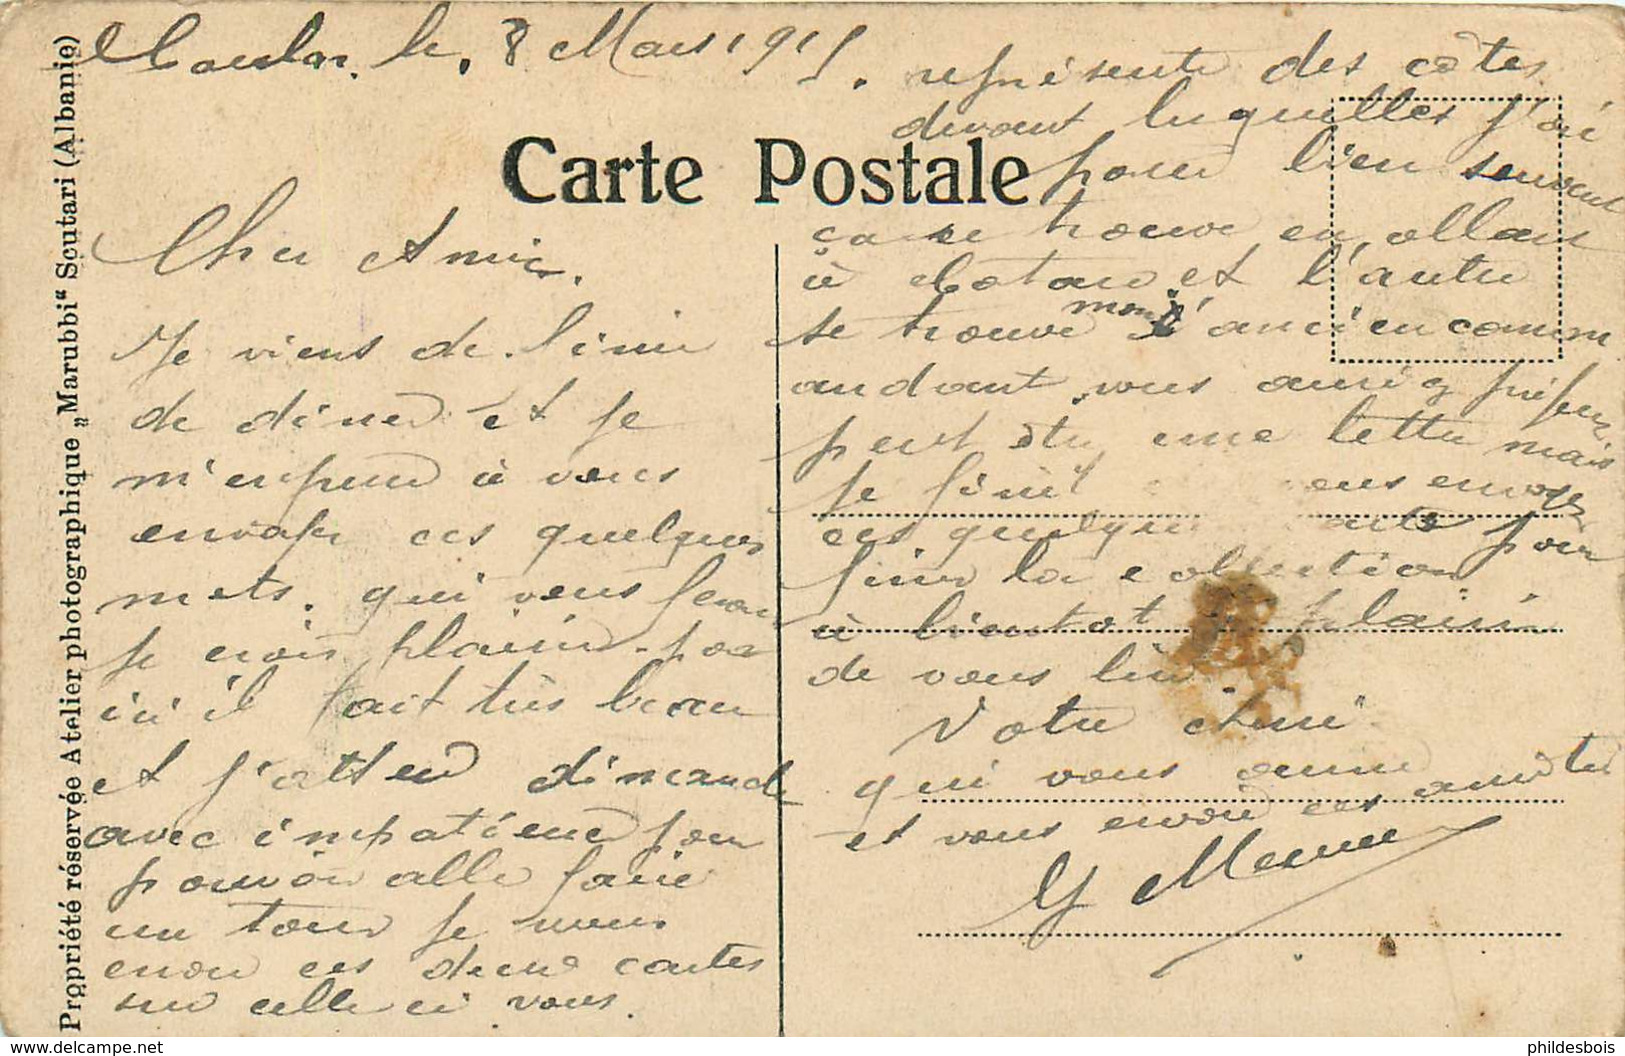 Propriété réservée Atelier photographique „Marubbi“ Scutari (Albanie)
Carte Postale
le, 8 Mars 191
Cher Amie.
Je viens de finir
de diner et je
m'enpreur à vous
envoyer ces quelques
mots. qui vous feron
je crois plaisir. par
ici il fait très beau
et j'atten dimanche
avec impatience pour
pouvoir alle faire
un tour je vous
envoi ces deux cartes
sur celle ci vous.
représente des côtes
devant lesquelles j'ai
passé bien souvent
ça se trouve en allant
à Cataro et l'autre
se trouve mon l'ancien comm
andant vous auriez préféré
peut être une lettre mais
je finit vous envoyer
ces quelques carte pour
finir la collection
à bientot plaisir
de vous lire
Votre Ami
qui vous aime
et vous envoi ces amitié
phildesbois